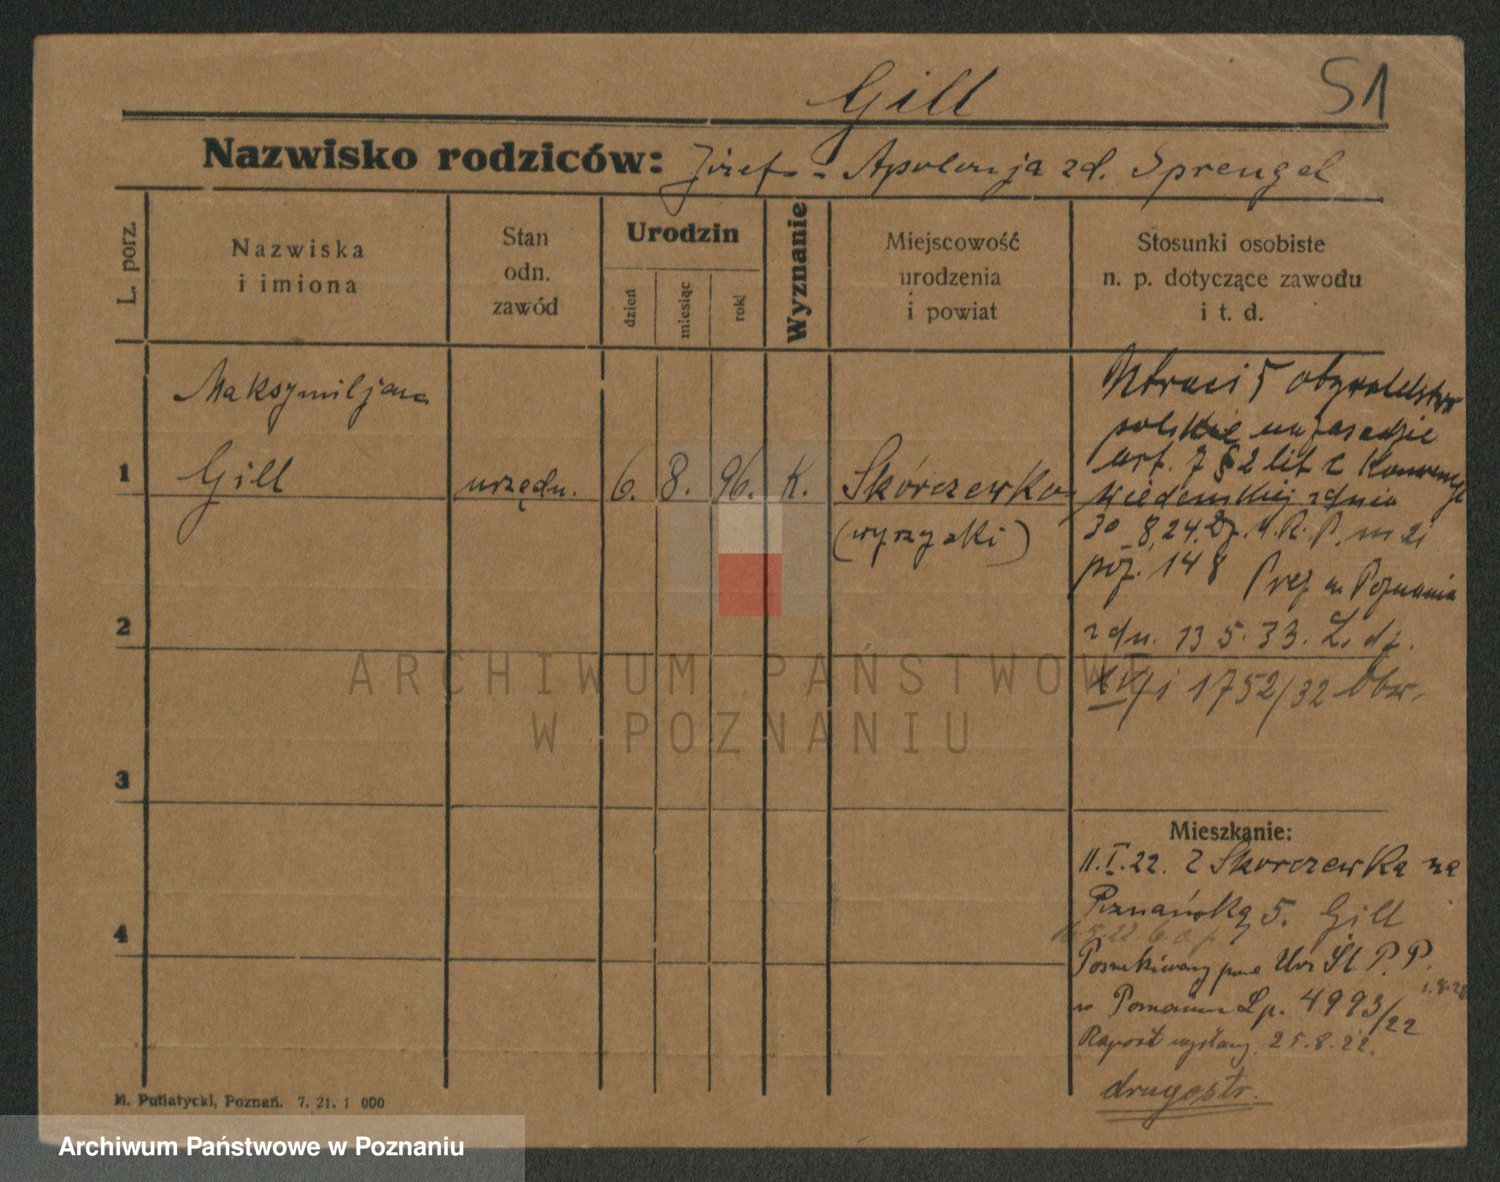 Gill
51
Nazwisko rodziców: Józef - Apolonja zd. Sprengel
L. porz.
Nazwiska
i imiona
Stan
odn.
zawód
Urodzin
dzień
miesiąc
rok
Wyznanie
Miejscowość
urodzenia
i powiat
Stosunki osobiste
n. p. dotyczące zawodu
i t. d.
Maksymiljan
1 Gill urzędn. 6. 8. 96. K. Skórczewko
(wyrzyski)
obywatelstwo
polskie na zasadzie
art. 7 § 2 lit. Konwencji
Wiedeńskiej z dnia
30 8.24. Dz. U. R. P. nr 21
poz. 148 Prez. m. Poznania
z dn. 13 5. 33. L. dz.
1752/32 Obw.
2
3
4
Mieszkanie:
11.I.22. Z Skorczewka na
Poznańską 5. Gill
Poszukiwany przez Urz Śl. P. P.
w Poznaniu Lp. 4993/22
Raport wysłany 25.8.22.
drugostr.
M. Putiatycki, Poznań. 7. 21. 1 000
ARCHIWUM PAŃSTWOWE
W POZNANIU
Archiwum Państwowe w Poznaniu